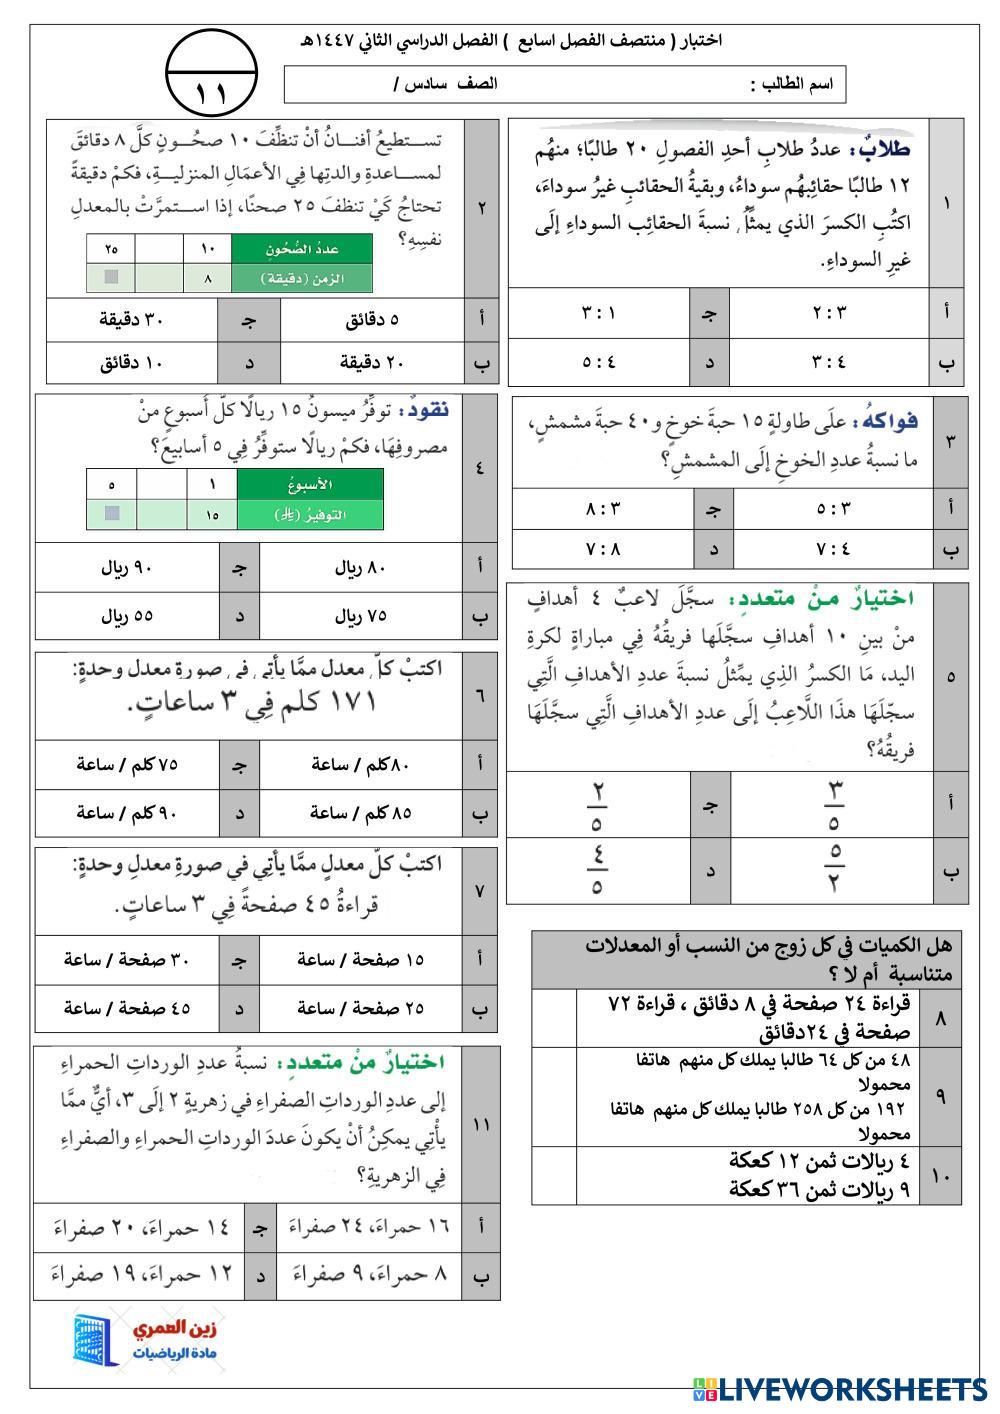 اختبار ( منتصف الفصل اسابع ) الفصل الدراسي الثاني ١٤٤٧هـ
١١
اسم الطالب : الصف سادس /
١
طلابٌ: عددُ طلابِ أحدِ الفصولِ ٢٠ طالبًا؛ منهُم
١٢ طالبًا حقائِبهُم سوداءُ، وبقيةُ الحقائبِ غيرُ سوداءَ،
اكتُبِ الكسرَ الذي يمثِّلُ نسبةَ الحقائِبِ السوداءِ إلَى
غيرِ السوداءِ.
أ ٣ : ٢ ج ١ : ٣
ب ٤ : ٣ د ٤ : ٥
٢
تستطيعُ أفنانُ أنْ تنظِّفَ ١٠ صحُونٍ كلَّ ٨ دقائقَ
لمساعدةِ والدتِها فِي الأعمَالِ المنزليةِ، فكمْ دقيقةً
تحتاجُ كَيْ تنظفَ ٢٥ صحنًا، إذا استمرَّتْ بالمعدلِ
نفسِهِ؟
عددُ الصُّحُونِ ١٠ ٢٥
الزمن (دقيقة) ٨
أ ٥ دقائق ج ٣٠ دقيقة
ب ٢٠ دقيقة د ١٠ دقائق
٣
فواكهُ: علَى طاولةٍ ١٥ حبةَ خوخٍ و ٤٠ حبةَ مشمشٍ،
ما نسبةُ عددِ الخوخِ إلَى المشمشِ؟
أ ٣ : ٥ ج ٣ : ٨
ب ٤ : ٧ د ٨ : ٧
٤
نقودٌ: توفِّرُ ميسونُ ١٥ ريالًا كلَّ أُسبوعٍ منْ
مصروفِهَا، فكمْ ريالًا ستوفِّرُ فِي ٥ أسابيعَ؟
الأسبوعُ ١ ٥
التوفيرُ (⃁) ١٥
أ ٨٠ ريال ج ٩٠ ريال
ب ٧٥ ريال د ٥٥ ريال
٥
اختيارٌ منْ متعددٍ: سجَّلَ لاعبٌ ٤ أهدافٍ
منْ بينِ ١٠ أهدافٍ سجَّلَها فريقُهُ فِي مباراةٍ لكرةِ
اليدِ، مَا الكسرُ الذِي يمثِّلُ نسبةَ عددِ الأهدافِ الَّتِي
سجّلَهَا هذَا اللَّاعِبُ إلَى عددِ الأهدافِ الَّتِي سجَّلَهَا
فريقُهُ؟
أ ٣/٥ ج ٢/٥
ب ٥/٢ د ٤/٥
٦
اكتبْ كلَّ معدلٍ ممَّا يأتي في صورةِ معدلِ وحدةٍ:
١٧١ كلم فِي ٣ ساعاتٍ.
أ ٨٠كلم / ساعة ج ٧٥ كلم / ساعة
ب ٨٥ كلم / ساعة د ٩٠ كلم / ساعة
٧
اكتبْ كلَّ معدلٍ ممَّا يأتِي في صورةِ معدلِ وحدةٍ:
قراءةُ ٤٥ صفحةً فِي ٣ ساعاتٍ.
أ ١٥ صفحة / ساعة ج ٣٠ صفحة / ساعة
ب ٢٥ صفحة / ساعة د ٤٥ صفحة / ساعة
هل الكميات في كل زوج من النسب أو المعدلات
متناسبة أم لا ؟
٨
قراءة ٢٤ صفحة في ٨ دقائق ، قراءة ٧٢
صفحة في ٢٤دقائق
٩
٤٨ من كل ٦٤ طالبا يملك كل منهم هاتفا
محمولا
١٩٢ من كل ٢٥٨ طالبا يملك كل منهم هاتفا
محمولا
١٠
٤ ريالات ثمن ١٢ كعكة
٩ ريالات ثمن ٣٦ كعكة
١١
اختيارٌ منْ متعددٍ: نسبةُ عددِ الورداتِ الحمراءِ
إلى عددِ الورداتِ الصفراءِ في زهريةٍ ٢ إلَى ٣، أيٌّ ممَّا
يأْتِي يمكِنُ أنْ يكونَ عددَ الورداتِ الحمراءِ والصفراءِ
فِي الزهريةِ؟
أ ١٦ حمراءَ، ٢٤ صفراءَ ج ١٤ حمراءَ، ٢٠ صفراءَ
ب ٨ حمراءَ، ٩ صفراءَ د ١٢ حمراءَ، ١٩ صفراءَ
زين العمري
مادة الرياضيات
LIVEWORKSHEETS